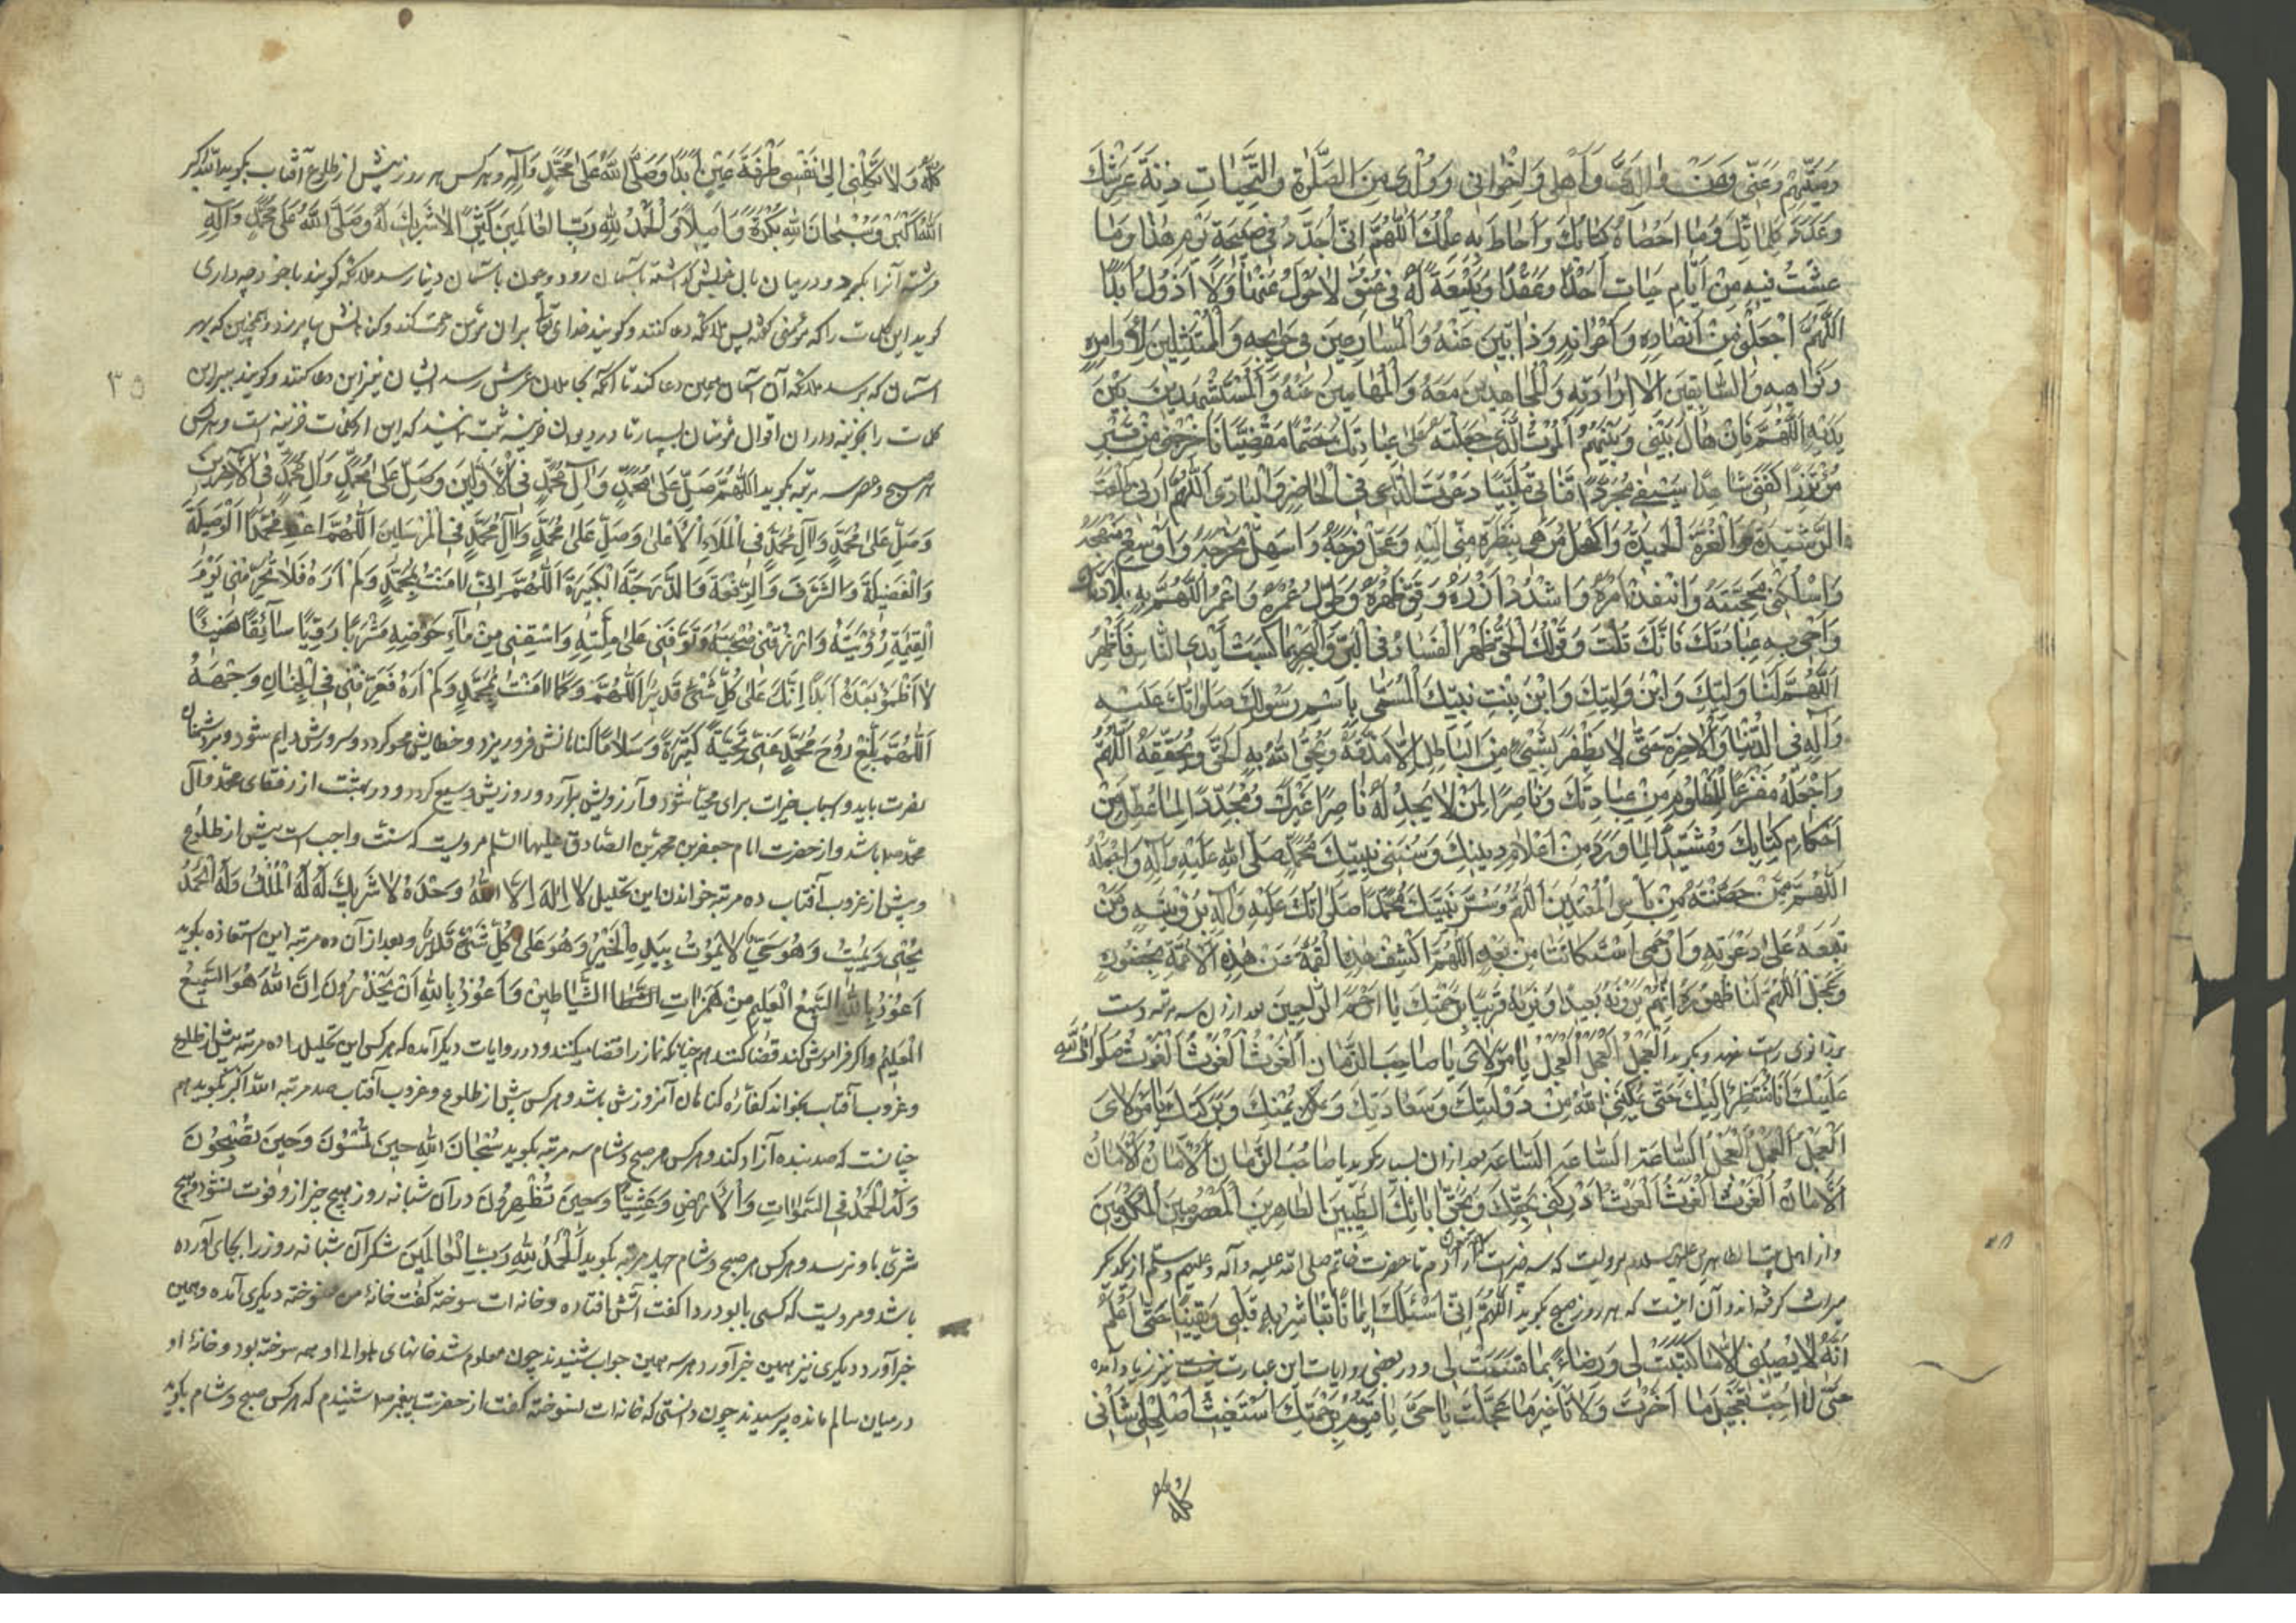 وميتهم وعنى وعن والدى واهلى واخوانى وولدى من الصلوة والتحيات زنة عرشك
وعدد كلماتك وما احصاه كتابك واحاط به علمك اللهم انى اجدد فى صبيحة يومى هذا وما
عشت فيه من ايام حياتى عهدا وعقدا وبيعة له فى عنقى لا احول عنها ولا ازول ابدا
اللهم اجعلنى من انصاره واعوانه وذابين عنه والمسارعين فى حوائجه والممتثلين لاوامره
ونواهيه والسابقين الى ارادته والمجاهدين معه والمحامين عنه والمستشهدين بين
يديه اللهم فان حال بينى وبينهم الموت الذى جعلته على عبادك حتما مقضيا فاخرجنى من قبرى
مؤتزرا كفنى شاهدا سيفى مجردا قناتى ملبيا دعوت الداعى فى الحاضر والبادى اللهم ارنى الطلعة
الرشيدة والغرة الحميدة واكحل مرهى بنظرة منى اليه وعجل فرجه واسهل مخرجه واوسع منهجه
واسلكنى محجته وانفذ امره واشدد ازره وقو ظهره وطول عمره واعمر اللهم به بلادك
واحى به عبادك فانك قلت وقولك الحق ظهر الفساد فى البر والبحر بما كسبت ايدى الناس فاظهر
اللهم لنا وليك وابن وليك وابن بنت نبيك المسمى باسم رسولك صلواتك عليه
وآله فى الدنيا والآخرة حتى لا يظفر بشىء من الباطل الا مزقه ويحق الله به الحق ويحققه اللهم
واجعله مفزعا للمظلوم من عبادك وناصرا لمن لا يجد له ناصرا غيرك ومجددا لما عطل من
احكام كتابك ومشيدا لما ورد من اعلام دينك وسنن نبيك محمد صلى الله عليه وآله واجعله
اللهم ممن حصنته من باس المعتدين اللهم وسر نبيك محمدا صلواتك عليه وآله برؤيته ومن
تبعه على دعوته وارحم استكانتنا من بعده اللهم اكشف هذه الغمة عن هذه الامة بحضوره
وعجل اللهم لنا ظهوره انهم يرونه بعيدا ونريه قريبا برحمتك يا ارحم الراحمين بعد از آن سه مرتبه دست
بر زانوى راست نهد وبگويد العجل العجل العجل يا مولاى يا صاحب الزمان الغوث الغوث الغوث صلوات الله
عليك انا منتظر اليك حتى يكفنى الله من دولتك وسعادتك ويمنك وبركتك يا مولاى
العجل العجل العجل الساعة الساعة الساعة بعد از آن بسيار بگويد يا صاحب الزمان الامان الامان
الامان الغوث الغوث الغوث ادركنى بحقك وبحق آبائك الطيبين الطاهرين المعصومين المكرمين
واز اهل بيت الطاهرين عليهم السلام مرويست كه سه ... از آدم تا حضرت خاتم صلى الله عليه وآله وعليهم وسلم از يكديگر
ميراث گرفته اند وآن اينست كه هر روز صبح بگويد اللهم انى اسئلك ايمانا تباشر به قلبى ويقينا حتى اعلم
انه لا يصيبنى الا ما كتبت لى ورضاء بما قسمت لى ودر بعضى روايات اين عبارت نيز زياد آمده
حتى لا احب تعجيل ما اخرت ولا تاخير ما عجلت يا حى يا قيوم برحمتك استغيث اصلح لى شانى
كله ولا
كله ولا تكلنى الى نفسى طرفة عين ابدا وصلى الله على محمد وآله وهر كس هر روز پيش از طلوع آفتاب بگويد الله اكبر
الله اكبر وسبحان الله بكرة واصيلا والحمد لله رب العالمين كثيرا لا شريك له وصلى الله على محمد وآله
فرشته آنرا بگيرد ودر ميان بال خويش گذاشته باسمان رود وچون باسمان دنيا رسد ملائكه گويند با خود چه دارى
گويد اين كلمات را كه مؤمنى گفته پس ملائكه دعا كنند وگويند خداى تعالى بر آن مؤمن رحمت كند وگناهش بيامرزد وهمچنين كه بهر
آسمان كه برسد ملائكه آن آسمان همين دعا كنند تا آنكه بحاملان عرش رسد ايشان نيز اين دعا كنند وگويند ببر اين
كلمات را بخزينه داران اقوال مؤمنان بسپار تا در ديوان خزينه ثبت نمايند كه اين از كلمات خزينه است وهر كس
هر صبح وعصر سه مرتبه بگويد اللهم صل على محمد وآل محمد فى الاولين وصل على محمد وآل محمد فى الآخرين
وصل على محمد وآل محمد فى الملاء الاعلى وصل على محمد وآل محمد فى المرسلين اللهم اعط محمدا الوسيلة
والفضيلة والشرف والرفعة والدرجة الكبيرة اللهم انى آمنت بمحمد ولم اره فلا تحرمنى يوم
القيمة رؤيته وارزقنى صحبته وتوفنى على ملته واسقنى من ماء حوضه مشربا رويا سائغا هنيئا
لا اظمؤ بعده ابدا انك على كل شىء قدير اللهم وكما آمنت بمحمد ولم اره فعرفنى فى الجنان وجهه
اللهم بلغ روح محمد عنى تحية كثيرة وسلاما گناهانش فرو ريزد وخطايش محو گردد وسرورش دايم شود وبر دشمنان
نصرت يابد واسباب خيرات براى مهيا شود وآرزويش برآرد وروزيش وسيع گردد ودر بهشت از رفقاى محمد وآل
محمد ص باشد واز حضرت امام جعفر بن محمد بن الصادق عليهما السلم مرويست كه سنت واجب است پيش از طلوع
وپيش از غروب آفتاب ده مرتبه خواندن اين تهليل لا اله الا الله وحده لا شريك له له الملك وله الحمد
يحيى ويميت وهو حى لا يموت بيده الخير وهو على كل شىء قدير وبعد از آن ده مرتبه اين استعاذه بگويد
اعوذ بالله السميع العليم من همزات الشياطين واعوذ بالله ان يحضرون ان الله هو السميع
العليم واگر فراموش كند قضا كند همچنانكه نماز را قضا ميكنند ودر روايات ديگر آمده كه هر كس اين تهليل را ده مرتبه پيش از طلوع
وغروب آفتاب بخواند كفاره گناهان آنروزش باشد وهر كس پيش از طلوع وغروب آفتاب صد مرتبه الله اكبر بگويد هم
چنانست كه صد بنده آزاد كند وهر كس هر صبح وشام سه مرتبه بگويد سبحان الله حين تمسون وحين تصبحون
وله الحمد فى السموات والارض وعشيا وحين تظهرون در آن شبانه روز هيچ چيز از او فوت نشود وهيچ
شرى باو نرسد وهر كس هر صبح وشام چهار مرتبه بگويد الحمد لله رب العالمين شكر آن شبانه روز را بجاى آورده
باشد ومرويست كه كسى بابو دردا گفت آتش افتاده وخانه ات سوخته گفت خانهٔ من نسوخته ديگرى آمده وهمين
خبر آورد ديگرى نيز همين خبر آورد هر سه همين جواب شنيدند چون معلوم شد خانهاى حوالى او همه سوخته بود وخانهٔ او
در ميان سالم مانده پرسيدند چون دانستى كه خانه ات نسوخته گفت از حضرت پيغمبر ص شنيدم كه هر كس صبح وشام بگويد
٣٥